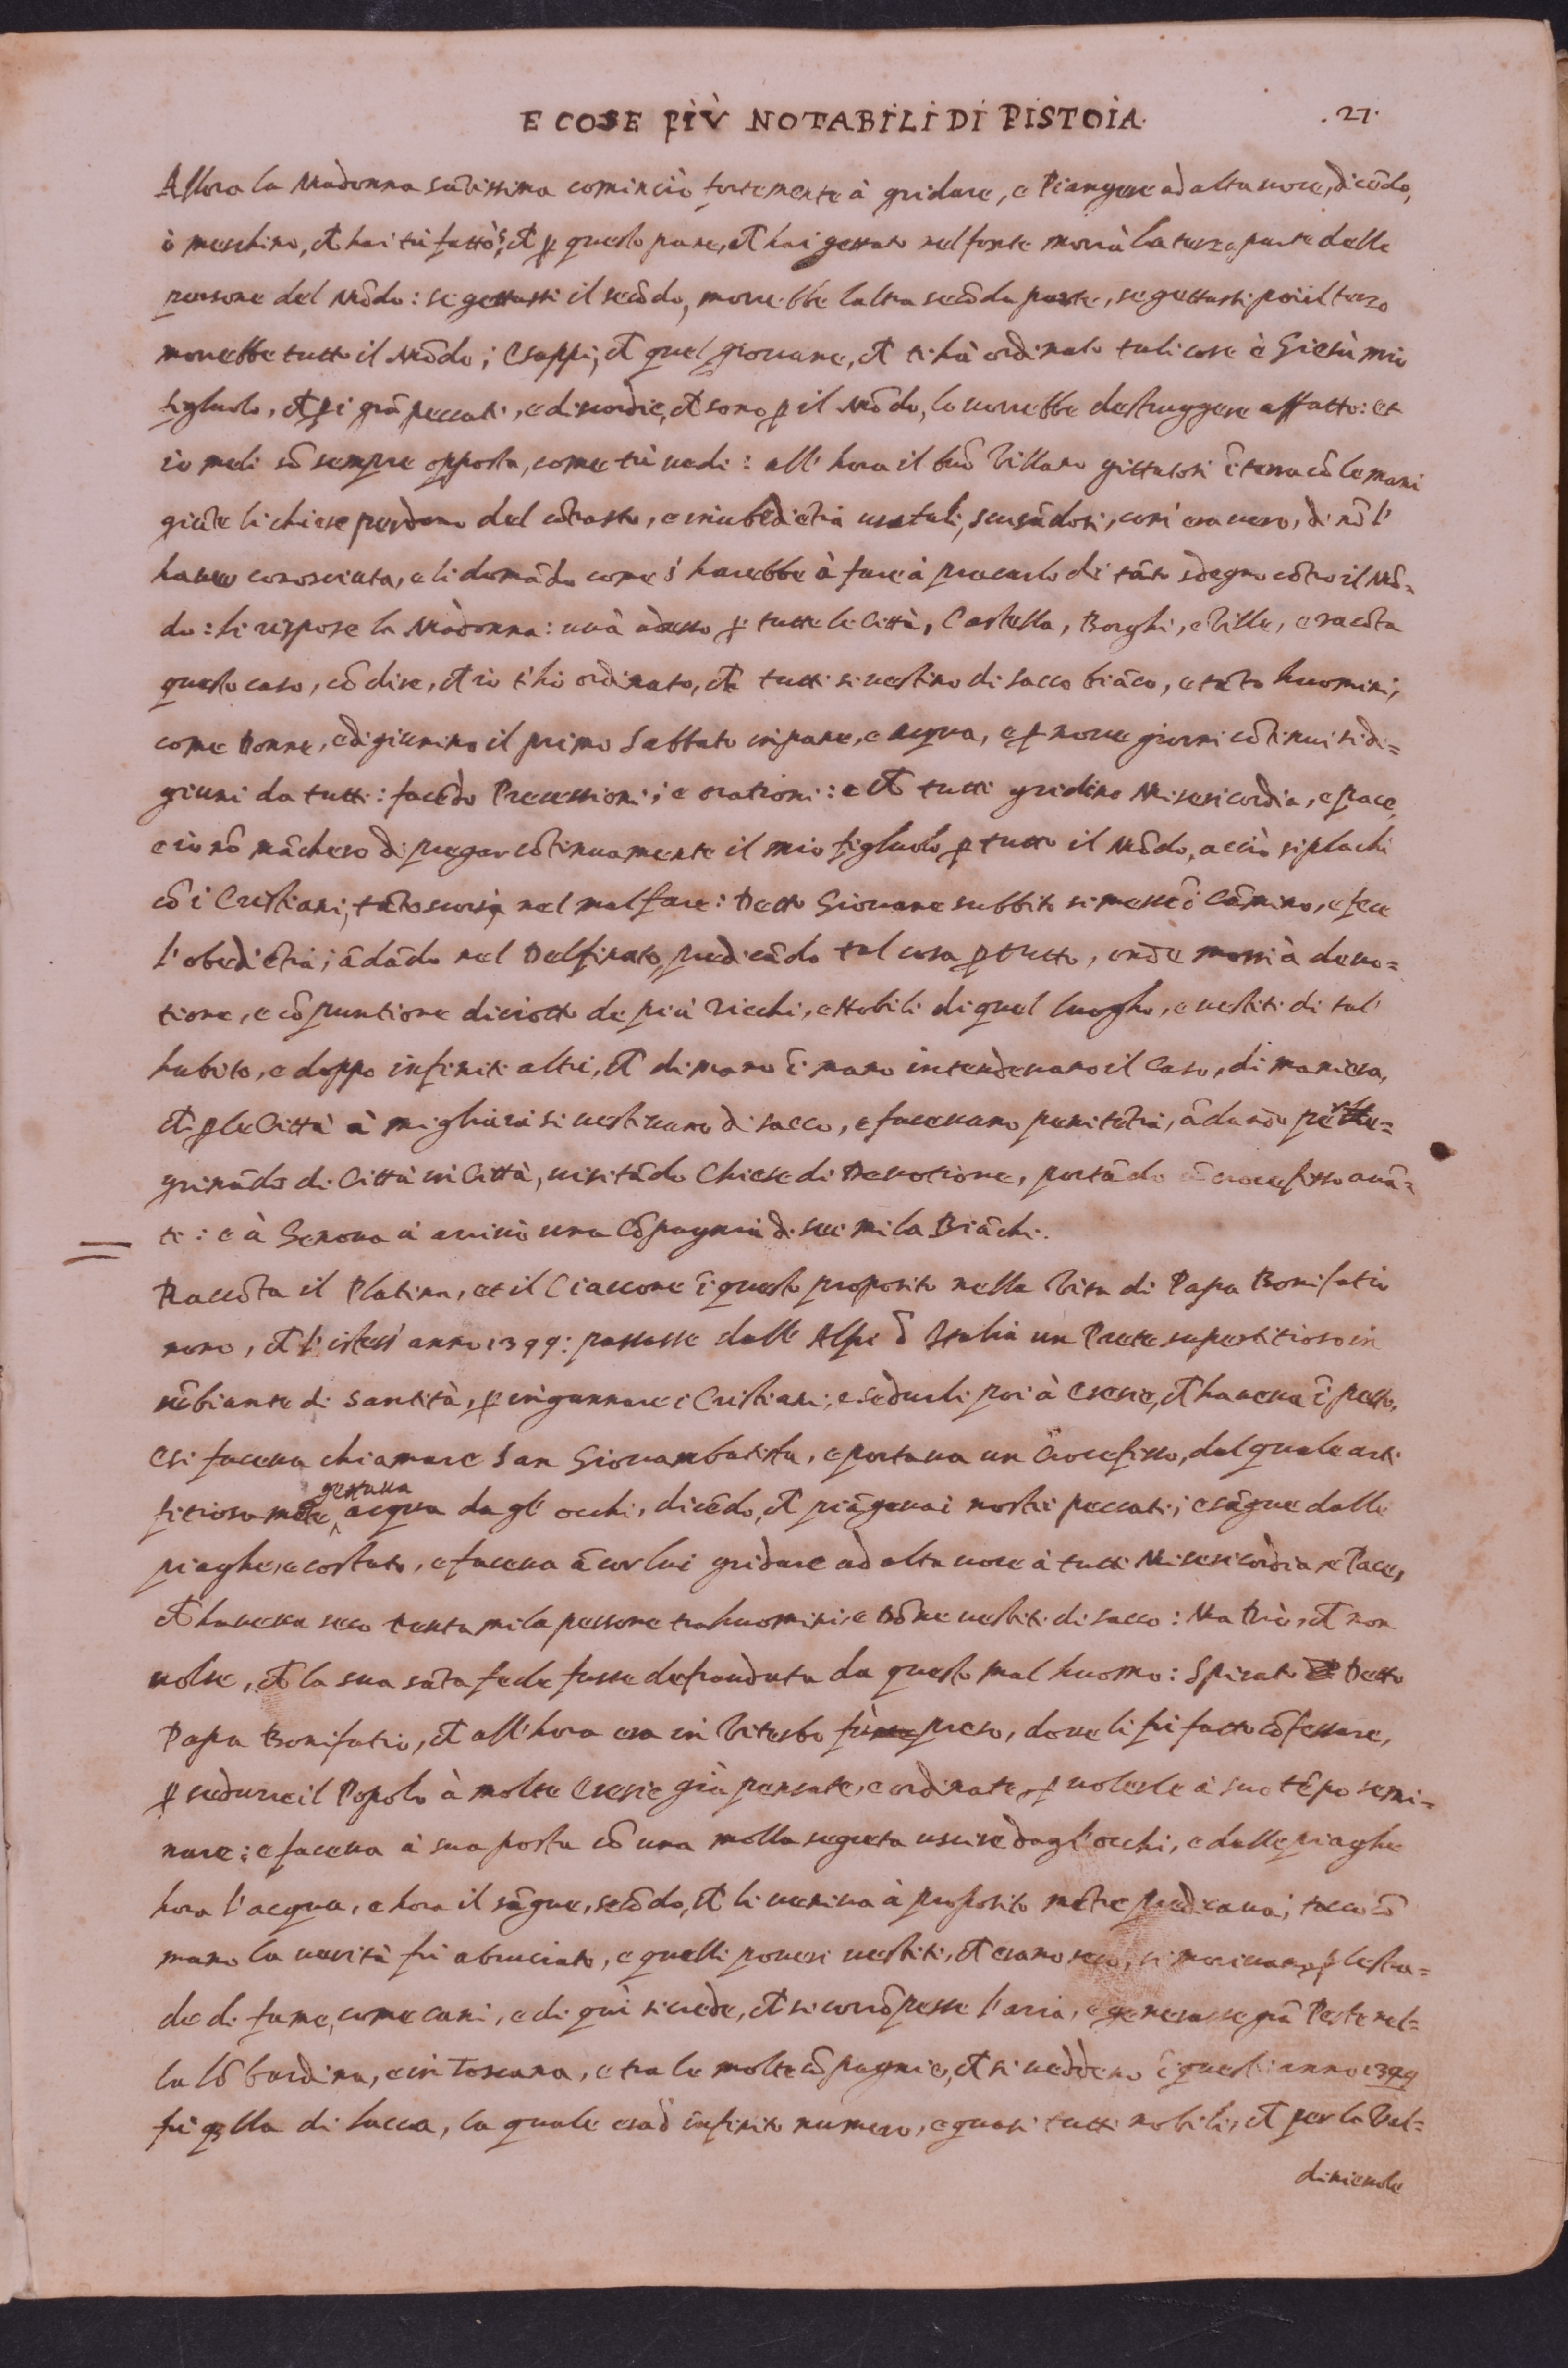 E COSE PIÙ NOTABILI DI PISTOIA. .27.
Allora la Madonna sãtissima cominciò fortemente à gridare, e Piangere ad alta uoce, dicẽdo,
ò meschino, ch hai tù fatto? ch ꝑ questo pane, ch hai gettato nel fonte morrà la terza parte delle
persone del Mõdo: se gettassi il secõdo, morrebbe laltra secõda parte, se gettassi poi il terzo
morrebbe tutto il Mõdo; e sappi, ch quel giouane, ch ti hà ordinato tali cose è Giesù mio
figluolo, ch ꝑ i grã peccati, e discordie, ch sono ꝑ il Mõdo, lo uorrebbe destruggere affatto: et
io meli sõ sempre opposta, come tù uedi: all' hora il buõ Villano gittatosi ĩ terra cõ le mani
giũte li chiese perdono del cõtrasto, e inubediẽtia usatali, scusãdosi, com' era uero, di nõ l'
hauer conosciuta, e li domãdo come s' harebbe à fare à placarlo di tãto sdegno cõtro il Mõ-
do: li rispose la Madonna: uà adesso ꝑ tutte le Città, Castella, Borghi, e Ville, e racõta
questo caso, cõ dire, ch io t' hò ordinato, ch tutti si uestino di sacco biãco, e tãto huomini,
come Donne, e digiunino il primo Sabbato in pane, e acqua, e ꝑ noue giorni cõtinui si di=
giuni da tutti: facẽdo Processioni, e orationi: e ch tutti gridino Misericordia, e pace,
e io nõ mãchero di pregar cõtinuamente il mio figluolo ꝑ tutto il Mõdo, acciò si plachi
cõ i Cristiani, tãto scorsi nel mal fare: Detto Giouane subbito si messe ĩ Cãmino, e fece
l' obediẽtia, ãdãdo nel Delfinato, predicãdo tal cosa ꝑ tutto, onde mossi à deuo=
tione, e cõpuntione diciotto de più ricchi, e Nobili di quel luogho, e uestiti di tal'
habito, e doppo infiniti altri, ch di mano ĩ mano intendeuano il Caso, di maniera,
ch ꝑ le Città à migliaia si uestiuano di sacco, e faceuano penitẽtia, ãdando pere=
grinãdo di Città in Città, uisitãdo Chiese di Deuotione, portãdo ũ crocefisso auã=
ti: e à Genoua ui arriuò una Cõpagnia di sei mila Biãchi.
Raccõta il Platina, et il Ciaccone ĩ questo proposito nella Vita di Papa Bonifatio
nono, ch l' istess' anno 1399: passasse dalle Alpi ĩ Italia un Prete superstitioso in
sẽbiante di Santità, ꝑ ingannare i Cristiani, e sedurli poi à eresie, ch haueua ĩ petto,
e si faceua chiamare San Giouambatista, e portaua un Crocefisso, dal quale arti
fitiosamẽte gettaua acqua da gl' occhi, dicẽdo, ch piãgeua i nostri peccati; e sãgue dalle
piaghe, e costato, e faceua ãcor lui gridare ad alta uoce à tutti Misericordia, e Pace,
ch haueua seco trenta mila persone tra huomini, e Dõne uestiti di sacco: Ma Dio, ch non
uolse, ch la sua sãta fede fusse defraudata da questo mal huomo: Spirato Detto
Papa Bonifatio, ch all' hora era in Viterbo fù preso, doue li fù fatto cõfessare,
ꝑ sedurre il Popolo à molte Eresie già pensate, e ordinate, ꝑ uolerle à suo tẽpo semi=
nare: e faceua à sua posta cõ una molla segreta uscire dagl' occhi, e dalle piaghe
hora l' acqua, e hora il sãgue, secõdo, ch li ueniua à proposito mẽtre predicaua; tocco cõ
mano la uerità fù abruciato, e quelli poueri uestiti, ch erano seco, si moriuano ꝑ le stra=
de di fame, come cani, e di quì si crede, ch si corrõpesse l' aria, e generasse grã Peste nel=
la Lõbardina, e in Toscana, e tra le molte cõpagnie, ch si ueddeno ĩ questi anno 1399
fù qlla di Lucca, la quale era d' infinito numero, e quasi tutti nobili, ch per la Val=
dinieuole